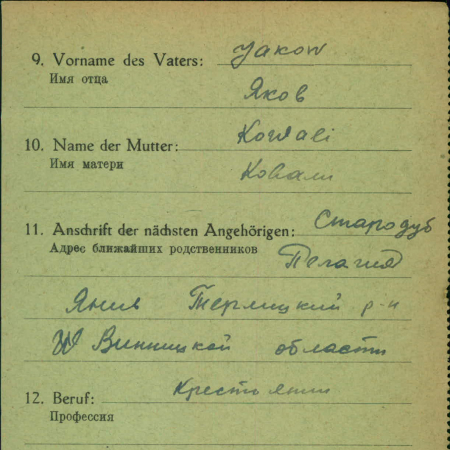 9. Vorname des Vaters: Jakow
Имя отца
Яков
10. Name der Mutter: Kowali
Имя матери
Ковали
11. Anschrift der nächsten Angehörigen: Стародуб
Адрес ближайших родственников Пелагия
Янив р-н
Винницкой области
12. Beruf: Крестьянин
Профессия